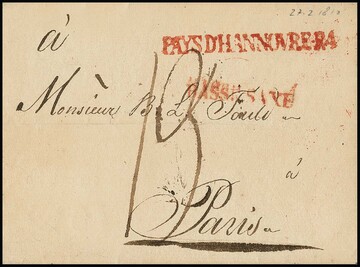 27.2.181
à
PAYS D'HANNOVRE.R4
Monsieur B. L. Fould
13
à
Paris